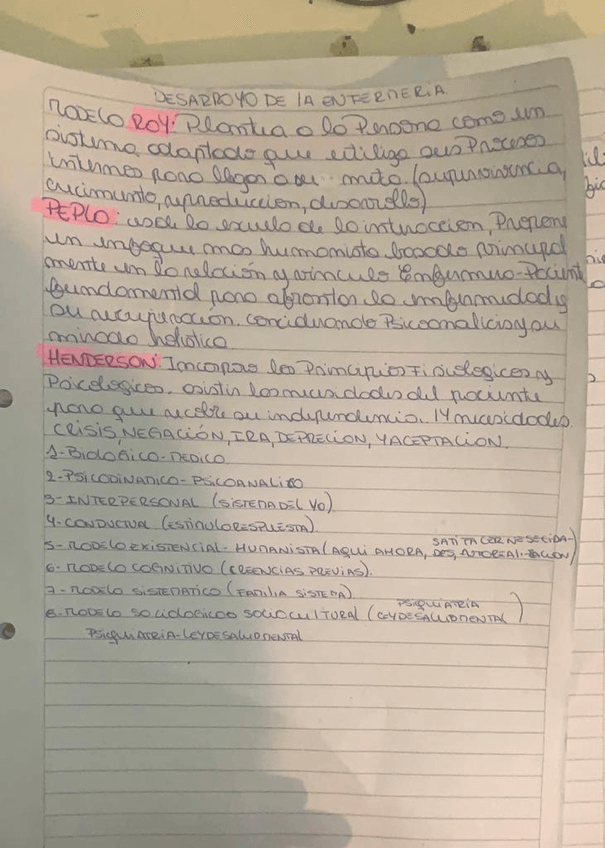 DESARROYO DE LA ENFERMERIA
MODELO ROY: Plantea a la Persona como un
sistema adaptado que utiliza sus Procesos
internos para llegar a su meta (supervivencia,
crecimiento, reproduccion, desarrollo)
PEPLO: es de la escuela de la interaccion, Propone
un enfoque mas humanista basado principal
mente en la relación y vinculo Enfermero-Paciente
fundamental para afrontar la enfermedad y
su recuperación. considerando Psicoanalicis y su
mirada holistica
HENDERSON: Incorpora los Principios Fisiologicos y
Psicologicos. asistir las necesidades del paciente
para que recobre su independencia. 14 necesidades.
CRISIS, NEGACIÓN, IRA, DEPRECION, Y ACEPTACION.
1-BIOLOGICO-MEDICO
2-PSICODINAMICO-PSICOANALITO
3-INTERPERSONAL (SISTEMA DEL YO)
4-CONDUCTUAL (ESTINULO RESPUESTA).
5-MODELO EXISTENCIAL-HUMANISTA (AQUI AHORA, SATITACER NESECIDA-
DES, AUTOREALIZACION)
6-MODELO COGNITIVO (CREENCIAS PREVIAS).
7-MODELO SISTEMATICO (FAMILIA SISTEMA).
8-MODELO SOCIOLOGICOO SOCIOCULTURAL (PSIQUIATRIA
LEY DE SALUD MENTAL)
PSIQUIATRIA-LEY DE SALUD MENTAL